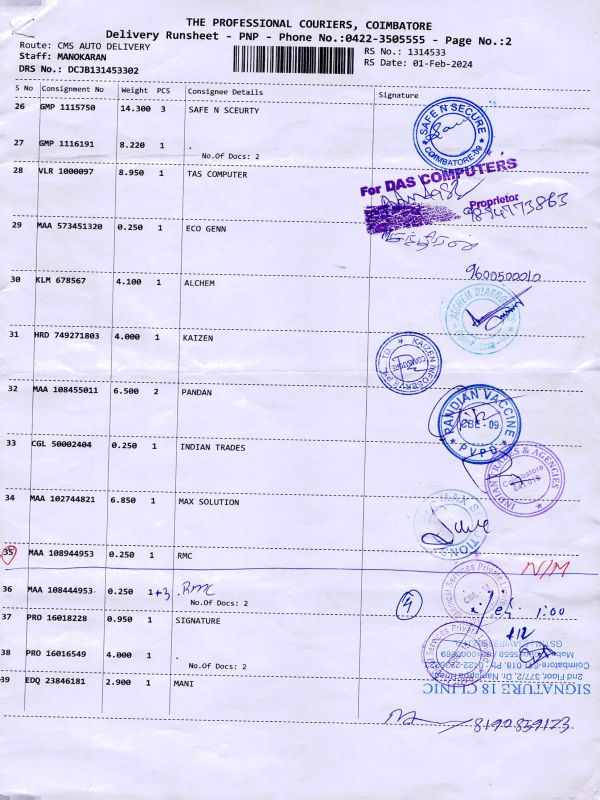 THE PROFESSIONAL COURIERS, COIMBATORE
Delivery Runsheet - PNP - Phone No.:0422-3505555 - Page No.:2
Route: CMS AUTO DELIVERY
RS No.: 1314533
Staff: MANOKARAN
RS Date: 01-Feb-2024
DRS No.: DCJB131453302
S No Consignment No Weight PCS Consignee Details Signature
26 GMP 1115750 14.300 3 SAFE N SCEURTY
SAFE N SECURE
COIMBATORE-09
27 GMP 1116191 8.220 1 .
No.Of Docs: 2
28 VLR 1000097 8.950 1 TAS COMPUTER
For DAS COMPUTERS
Proprietor
9894773863
29 MAA 573451320 0.250 1 ECO GENN
9600500010
30 KLM 678567 4.100 1 ALCHEM
31 HRD 749271803 4.000 1 KAIZEN
KAIZEN INFOSERVE PVT LTD
32 MAA 108455011 6.500 2 PANDAN
PANDIAN VACCINE
CBE-09
PVPD
33 CGL 50002404 0.250 1 INDIAN TRADES
INDIAN TRADES & AGENCIES
Coimbatore
641 018
34 MAA 102744821 6.850 1 MAX SOLUTION
35 MAA 108944953 0.250 1 RMC
N/M
36 MAA 108444953 0.250 1+3 .Rmc
No.Of Docs: 2
4
1:00
37 PRO 16018228 0.950 1 SIGNATURE
38 PRO 16016549 4.000 1 .
No.Of Docs: 2
SIGNATURE 18 CLINIC
2nd Floor, 377/2, Dr. Nanjappa Road,
39 EDQ 23846181 2.900 1 MANI
8190859123